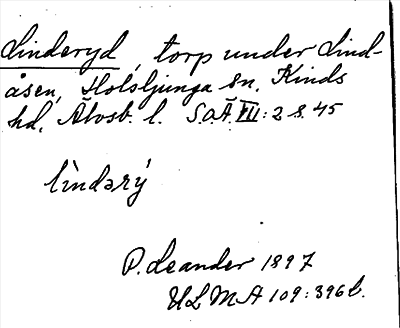 Linderyd, torp under Lind-
åsen, Holsljunga sn, Kinds
hd, Älvsb. l. S.O.Ä. VII: 2 s. 45
lìndərý
P. Leander 1897
ULMA 109: 396 b.